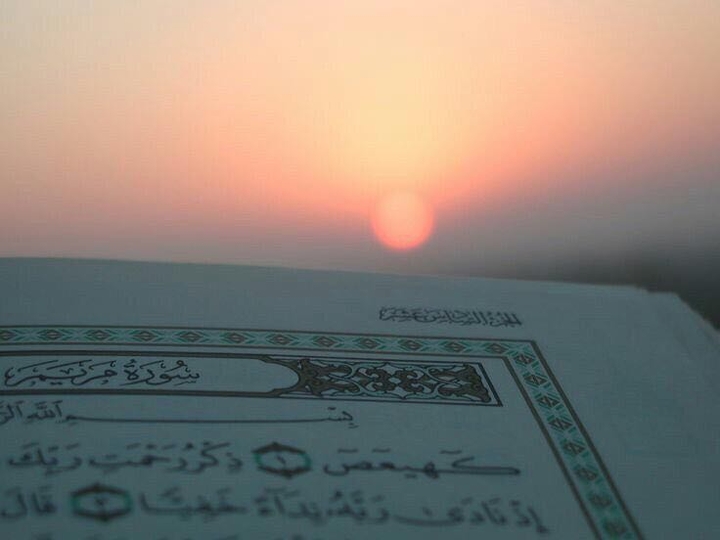 الجزء السادس عشر
سُورَةُ مَرْيَمَ
بِسْمِ ٱللَّهِ
كٓهيعٓصٓ ١ ذِكْرُ رَحْمَتِ رَبِّكَ
إِذْ نَادَىٰ رَبَّهُۥ نِدَآءً خَفِيًّا ٣ قَالَ